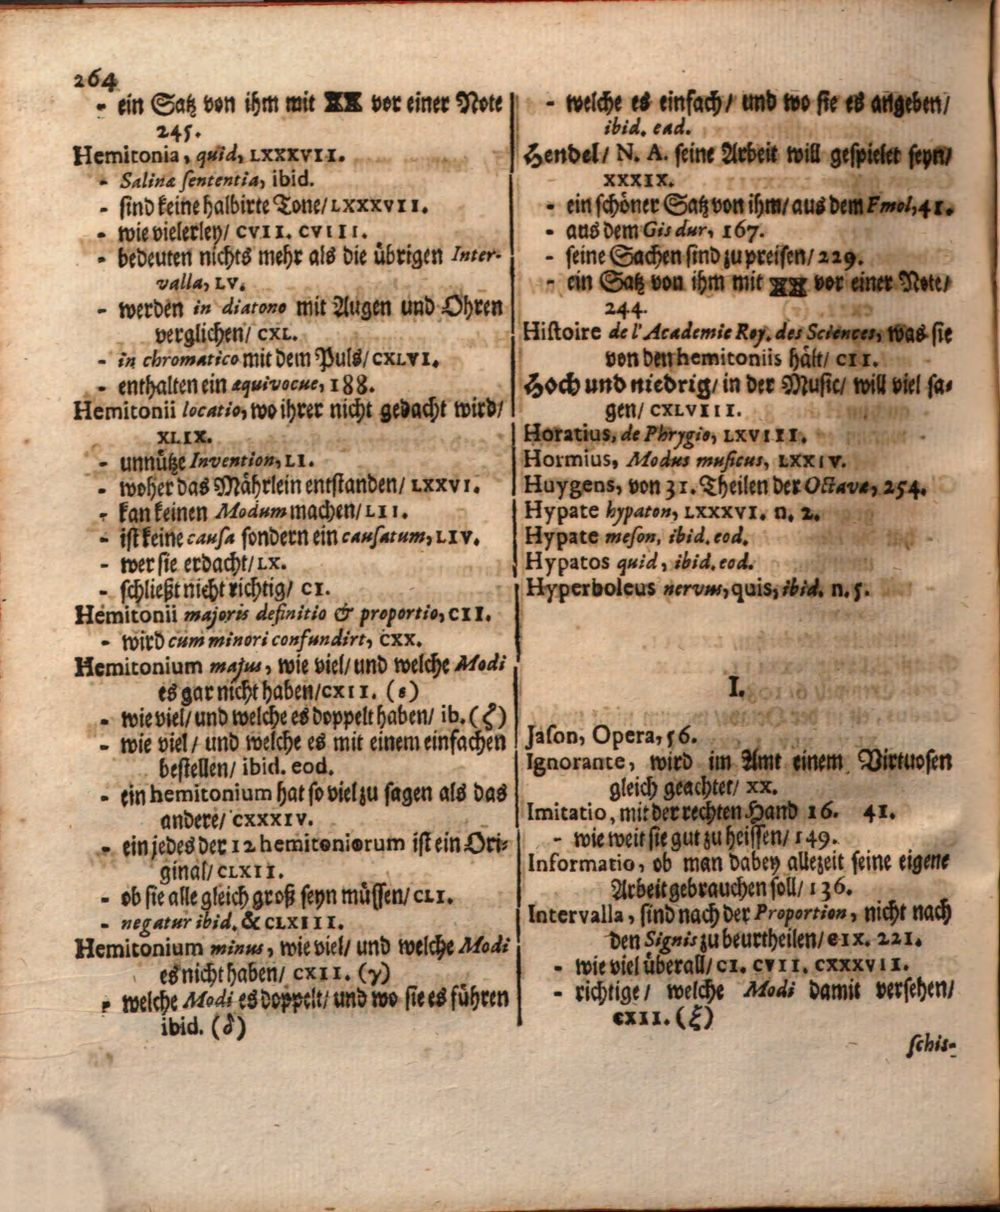 264
- ein Satz von ihm mit XX vor einer Note
245.
Hemitonia, quid, LXXXVII.
- Salinæ sententia, ibid.
- sind keine halbirte Tone/ LXXXVII.
- wie vielerley/ CVII. CVIII.
- bedeuten nichts mehr als die übrigen Inter-
valla, LV.
- werden in diatono mit Augen und Ohren
verglichen/ CXL.
- in chromatico mit dem Puls/ CXLVI.
- enthalten ein æquivocue, 188.
Hemitonii locatio, wo ihrer nicht gedacht wird/
XLIX.
- unnütze Invention, LI.
- woher das Mährlein entstanden/ LXXVI.
- kan keinen Modum machen/ LII.
- ist keine causa sondern ein causatum, LIV.
- wer sie erdacht/ LX.
- schließt nicht richtig/ CI.
Hemitonii majoris definitio & proportio, CII.
- wird cum minori confundirt, CXX.
Hemitonium majus, wie viel/ und welche Modi
es gar nicht haben/ CXII. (ε)
- wie viel/ und welche es doppelt haben/ ib. (ζ)
- wie viel / und welche es mit einem einfachen
bestellen/ ibid. eod.
- ein hemitonium hat so viel zu sagen als das
andere/ CXXXIV.
- ein jedes der 12 hemitoniorum ist ein Ori-
ginal/ CLXII.
- ob sie alle gleich groß seyn müssen/ CLI.
- negatur ibid. & CLXIII.
Hemitonium minus, wie viel/ und welche Modi
es nicht haben/ CXII. (γ)
- welche Modi es doppelt/ und wo sie es führen
ibid. (δ)
- welche es einfach/ und wo sie es angeben/
ibid. ead.
Hendel/ N. A. seine Arbeit will gespielet seyn/
XXXIX.
- ein schöner Satz von ihm/ aus dem F mol, 41.
- aus dem Gis dur, 167.
- seine Sachen sind zu preisen/ 229.
- ein Satz von ihm mit XX vor einer Note/
244.
Histoire de l' Academie Roy. des Sciences, was sie
von den hemitoniis hält/ CII.
Hoch und niedrig/ in der Music/ will viel sa-
gen/ CXLVIII.
Horatius, de Phrygio, LXVIII.
Hormius, Modus musicus, LXXIV.
Huygens, von 31. Theilen der Octavæ, 254.
Hypate hypaton, LXXXVI. n. 2.
Hypate meson, ibid. eod.
Hypatos quid, ibid. eod.
Hyperboleus nervus, quis, ibid. n. 5.
I.
Jason, Opera, 56.
Ignorante, wird im Amt einem Virtuosen
gleich geachtet/ XX.
Imitatio, mit der rechten Hand 16. 41.
- wie weit sie gut zu heissen/ 149.
Informatio, ob man dabey allezeit seine eigene
Arbeit gebrauchen soll/ 136.
Intervalla, sind nach der Proportion, nicht nach
den Signis zu beurtheilen/ CIX. 221.
- wie viel überall/ CI. CVII. CXXXVII.
- richtige/ welche Modi damit versehen/
CXII. (ξ)
schis-